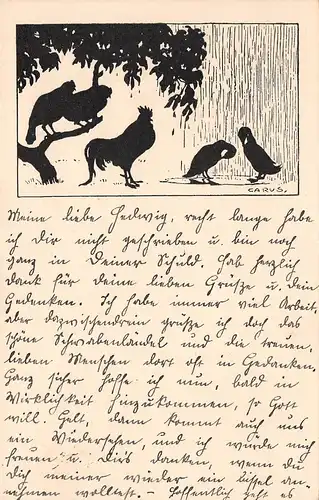 CARUS.
Meine liebe Hedwig, recht lange habe
ich Dir nicht geschrieben u. bin noch
ganz in Deiner Schuld hab herzlich
dank für deine lieben Grüsze u. dein
Gedenken. Ich habe immer viel Arbeit,
aber dazwischendrein grüsze ich doch das
schöne Schwabenländel und die treuen,
lieben Menschen dort oft in Gedanken,
Ganz sicher hoffe ich nun, bald in
Wirklichkeit hinzukommen, so Gott
will. Gelt, dann kommt auch uns
ein Wiedersehen, und ich würde mich
freuen u. Dir's danken, wenn du
Dich meiner wieder ein bissel an-
nehmen wolltest. – Hoffentlich geht es